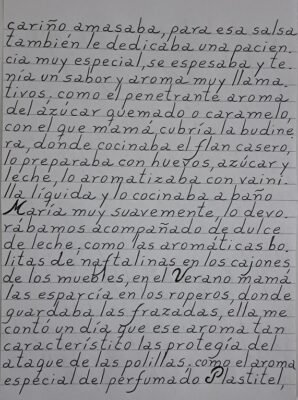 cariño amasaba, para esa salsa
también le dedicaba una pacien-
cia muy especial, se espesaba y te-
nía un sabor y aroma muy llama-
tivos, como el penetrante aroma
del azúcar quemado o caramelo,
con el que mamá cubría la budine-
ra, donde cocinaba el flan casero,
lo preparaba con huevos, azúcar y
leche, lo aromatizaba con vaini-
lla líquida y lo cocinaba a baño
María muy suavemente, lo devo-
rábamos acompañado de dulce
de leche, como las aromáticas bo-
litas de naftalinas en los cajones
de los muebles, en el Verano mamá
las esparcía en los roperos, donde
guardaba las frazadas, ella me
contó un día que ese aroma tan
característico las protegía del
ataque de las polillas, como el aroma
especial del perfumado Plastitel,